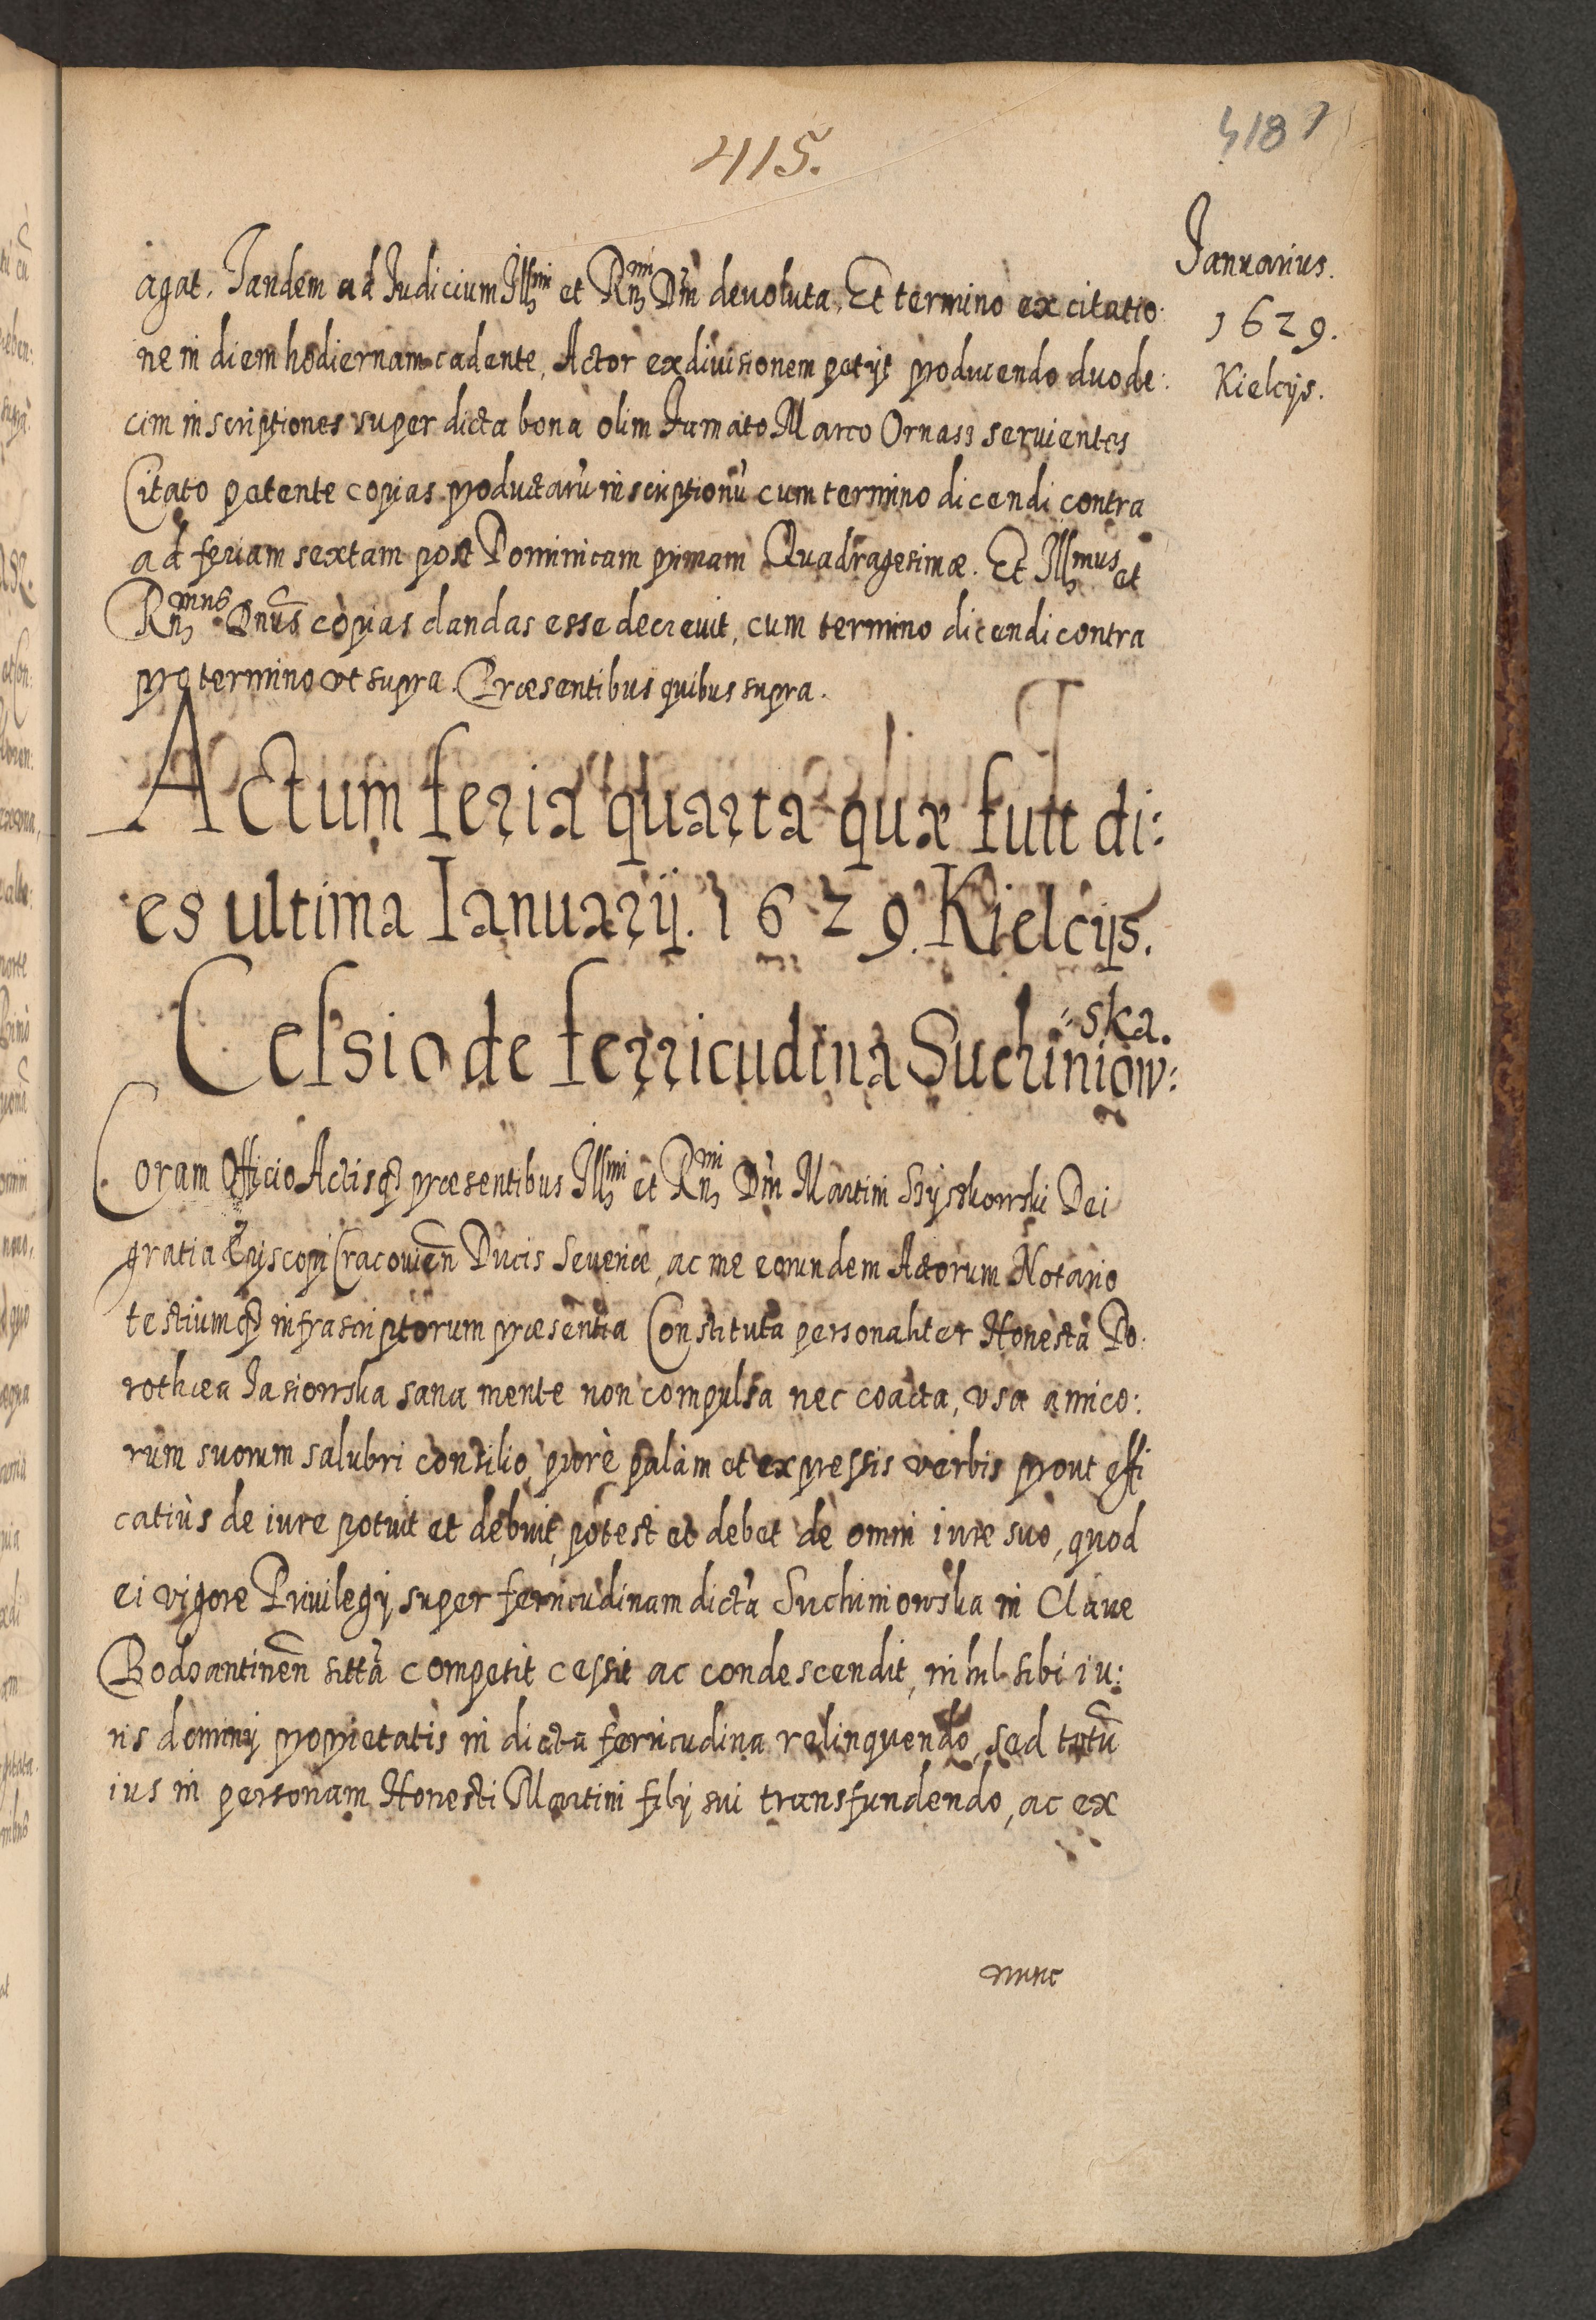 415.
418
Januarius.
1629.
Kielcijs.
agat. Tandem ad Judicium Illmi et Rmi Dni devoluta, Et termino ex citatio:
ne in diem hodiernam cadente, Actor exdivisionem petijt producendo duode:
cim inscriptiones super dicta bona olim Famato Marco Ornass servientes
Citato petente copias productarũ inscriptionũ cum termino dicendi contra
ad feriam sextam post Dominicam primam Quadragesimæ. Et Illmus et
Rmus Dnus copias dandas esse decrevit, cum termino dicendi contra
pro termino vt supra. Præsentibus quibus supra.
Actum feria quarta quæ fuit di:
es ultima Ianuarij. 1629. Kielcijs.
Cessio de ferricudina Suchiniow:
ska.
Coram Officio Actisq̃ præsentibus Illmi et Rmi Dni Martini Szyszkowski Dei
gratia Episcopi Cracovien̄ Ducis Severiæ, ac me eorundem Actorum Notario
testiumq̃ infrascriptorum præsentia Constituta personaliter Honesta Do:
rothæa Jasiowska sana mente non compulsa nec coacta, vsa amico:
rum suorum salubri consilio, purè palàm et expressis verbis prout effi
catiùs de iure potuit et debuit, potest et debet de omni iure suo, quod
ei vigore Privilegij super ferricudinam dictã Suchiniowska in Clave
Bodzantinen̄ sittã competit cessit ac condescendit, nihil sibi iu:
ris dominij proprietatis in dicta ferricudina relinquendo, sed totũ
ius in personam Honesti Martini filij sui transfundendo, ac ex
nunc